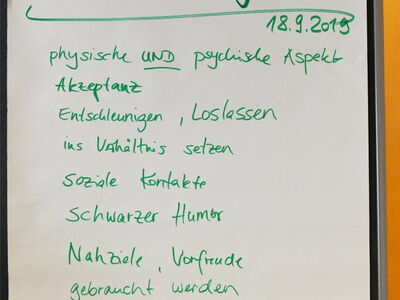 18.9.2019
physische UND psychische Aspekte
Akzeptanz
Entschleunigen, Loslassen
ins Verhältnis setzen
Soziale Kontakte
Schwarzer Humor
Nahziele, Vorfreude
gebraucht werden